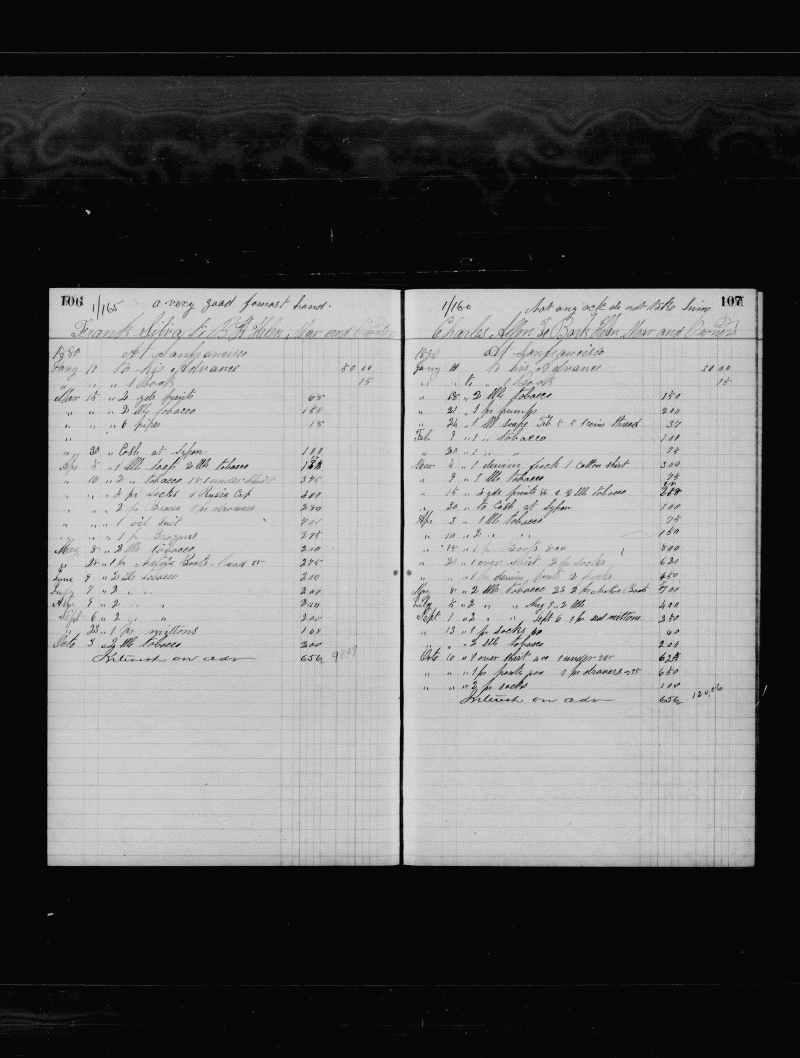 106
1/165 a very good fomost hand.
Frank Silvia to Bk Helen Mar and Owners
1880 At Sanfrancisco
Jany 11 To his Advance 50 00
" " " 1 Book 15
Mar 15 " 2 yds prints 68
" " " 2 lbs tobacco 150
" " " 6 pipes 18
" 30 " Cash at Sypan 100
Apr 5 " 1 lb soap 2 lbs tobacco
" 10 " 2 " tobacco 1 undershirt 375
" " " 2 pr socks 1 Rusia Cap 400
" " " 2 pr 1 pr drawers 250
" " " 1 oil suit 400
" " " 1 pr Brogans 275
May 8 " 2 lbs tobacco 200
" 28 " 1 pr Boots 275
June 9 " 2 lbs tobacco 200
July 7 " 2 " " 200
Aug 8 " 2 " " 200
Sept 6 " 2 " " 200
" 23 " 1 pr mittons 100
Octo 3 " 2 lbs tobacco 200
Interest on adv 656
107
1/160 Not any ack do not take him
Charles Allen To Bark Helen Mar and Owners
1880 At Sanfrancisco
Jany 11 To his Advance 50 00
" " to " 1 Book 15
" 2 lbs tobacco 150
" 21 " 1 pr pumps 200
" 24 " 1 lb soap Feb 5 2 skeins thread 37
Feb 9 " 1 " tobacco 100
" 20 " 1 " " 75
Mar 4 " 1 denim frock 1 Cotton shirt 300
" 9 " 1 lb tobacco 75
" 15 " 2 yds prints 2 lbs tobacco
" 30 " To Cash at Sypan 100
Apr 3 " 1 lb tobacco 75
" 10 " 2 " " 150
" 15 " 1 pr Boots 800 800
" 20 " 1 over shirt 2 pr socks 620
" " " 1 pr denim pants 2 frocks 650
May 8 " 2 lbs tobacco 25 2 pr Boots 700
July 5 " 2 " " Aug 9 " 2 lbs 400
Sept 1 " 2 " " Sept 6 1 pr mittons 350
" 13 " 1 pr socks 60 60
" " " 2 lbs tobacco 200
Octo 10 " 1 over shirt 400 1 under 225 625
" " " 1 pr pants 400 1 pr drawers 225 650
" " " 2 pr socks 100
Interest on adv 656 120,06